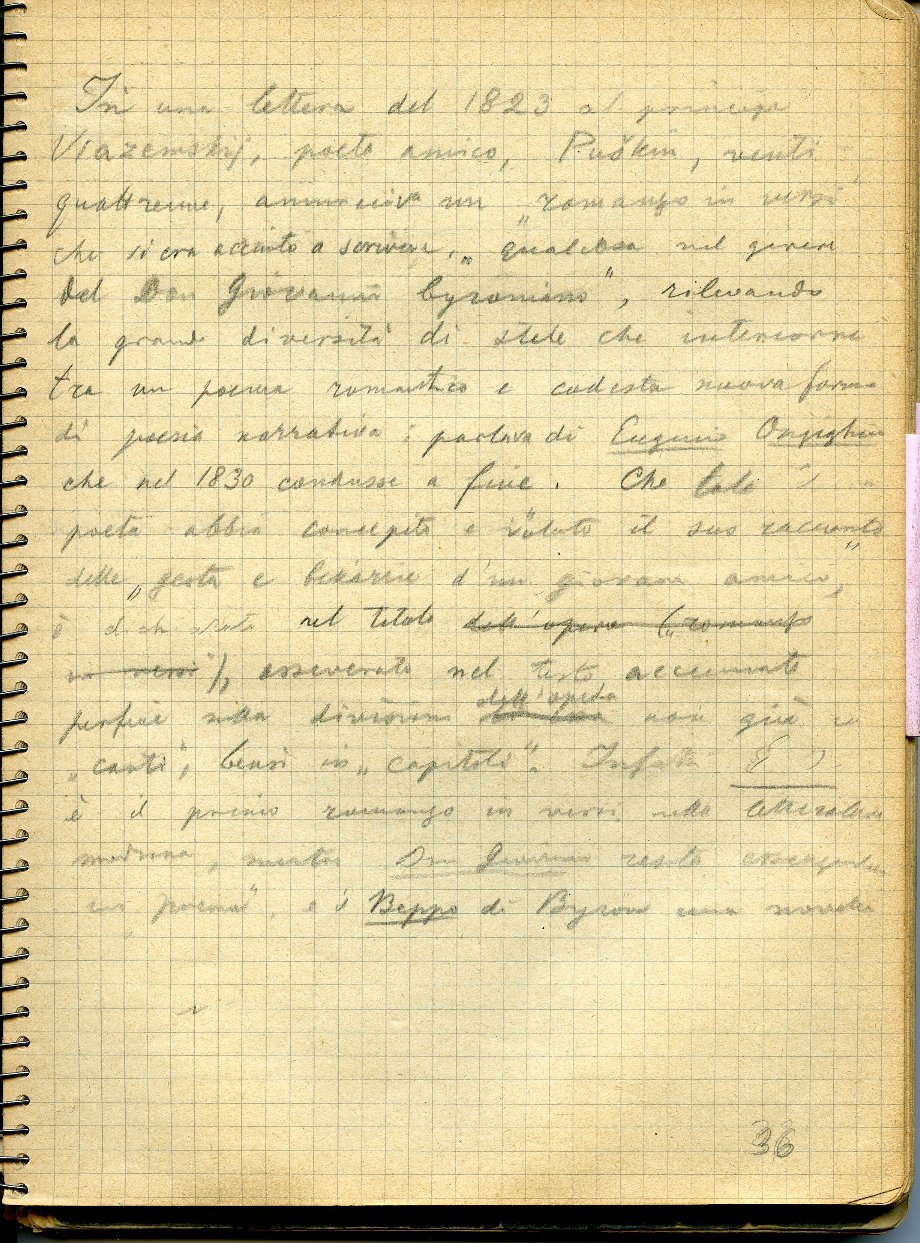 In una lettera del 1823 al principe
Viazemskij, poeta amico, Puškin, venti
quattrenne, annunciava un „romanzo in versi”
che si era accinto a scrivere, „qualcosa nel genere
del Don Giovanni byroniano”, rilevando
la grande diversità di stile che intercorre
tra un poema romantico e codesta nuova forma
di poesia narrativa: parlava di Eugenio Onjeghin
che nel 1830 condusse a fine. Che tale il
poeta abbia concepito e voluto il suo racconto
delle „gesta e bizzarrie d'un giovane amico”,
è dichiarato nel titolo dell'opera („romanzo
in versi”), asseverato nel testo, accennato
perfine nella divisione dell'opera non già in
„canti”, bensì in „capitoli”. Infatti E O
è il primo romanzo in versi nella letteratura
moderna, mentre Don Giovanni resta
un „poema”, e il Beppo di Byron una novella
36